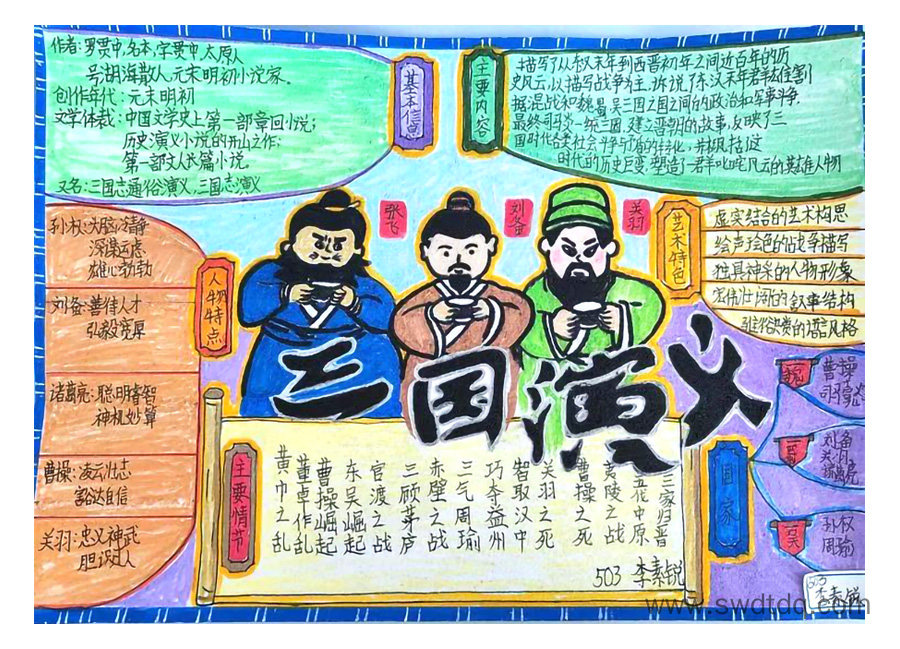 作者:罗贯中,名本,字贯中,太原人
号湖海散人.元末明初小说家。
创作年代:元末明初
文学体裁:中国文学史上第一部章回小说;
历史演义小说的开山之作;
第一部文人长篇小说
又名:三国志通俗演义,三国志演义
基本信息
主要内容
描写了从东汉末年到西晋初年之间近百年的历
史风云,以描写战争为主,诉说了东汉末年群雄割
据混战和魏蜀吴三国之间的政治和军事斗争,
最终司马炎一统三国,建立晋朝的故事,反映了三
国时代各类社会斗争与矛盾的转化,并概括这
时代的历史巨变,塑造了一群叱咤风云的英雄人物
孙权:头脑冷静
深谋远虑
雄心勃勃
刘备:善待人才
弘毅宽厚
诸葛亮:聪明睿智
神机妙算
曹操:凌云壮志
豁达自信
关羽:忠义神武
胆识过人
人物特点
张飞
刘备
关羽
艺术特色
虚实结合的艺术构思
绘声绘色的战争描写
独具神采的人物形象
宏伟壮阔的叙事结构
雅俗共赏的语言风格
三国演义
主要情节
黄巾之乱
董卓作乱
曹操崛起
东吴崛起
官渡之战
三顾茅庐
赤壁之战
三气周瑜
巧夺益州
智取汉中
关羽之死
曹操之死
夷陵之战
五伐中原
三家归晋
503 李素锐
国家
魏
曹操
司马炎
蜀
刘备
关羽
诸葛亮
吴
孙权
周瑜
503
李素锐
www.swdtdq.com